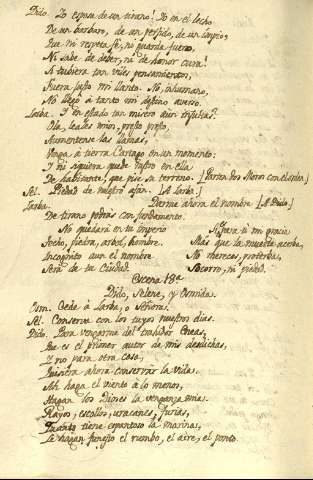 Dido. Yo esposa de un tirano! Yo en el lecho
De un barbaro, de un perfido, de un impio,
Que ni respeta fè, ni guarda fuero,
Ni sabe de deber, ni de honor cura!
Si tubiera tan viles pensamientos,
Fuera justo mi llanto. No, inhumano,
No llegò à tanto mi destino averso.
Iarba. Y en estado tan misero aun insultas?
Ola, leales mios, presto presto,
Aumentense las llamas,
Venga à tierra Cartago en un momento:
Y ni siquiera quede rastro en ella
De habitante que pise su terreno. [Parten dos Moros con el orden.]
Sel. Piedad de nuestro afan. [A Iarba.]
Iarba. Darme ahora el nombre [A Dido.]
De tirano podràs con fundamento.
No quedarà en tu imperio
Techo, piedra, arbol, hombre.
Incognito aun el nombre
Serà de tu Ciudad.
Y para ti mi gracia
Mas que la muerte acerba,
No mereces, proterba,
Socorro, ni piedad.
Escena 18ª
Dido, Selene, y Osmida.
Osm. Cede à Iarba, o Señora.
Sel. Conserva con los tuyos nuestros dias.
Dido. Para vengarme del trahidor Eneas,
Que es el primer autor de mis desdichas,
Y no para otra cosa,
Quisiera ahora conservar la vida.
Ah haga el viento à lo menos,
Hagan los Dioses la venganza mia.
Rayos, escollos, uracanes, furias,
Quanto tiene espantoso la marina,
Le hagan funesto el rumbo, el aire, el ponto.